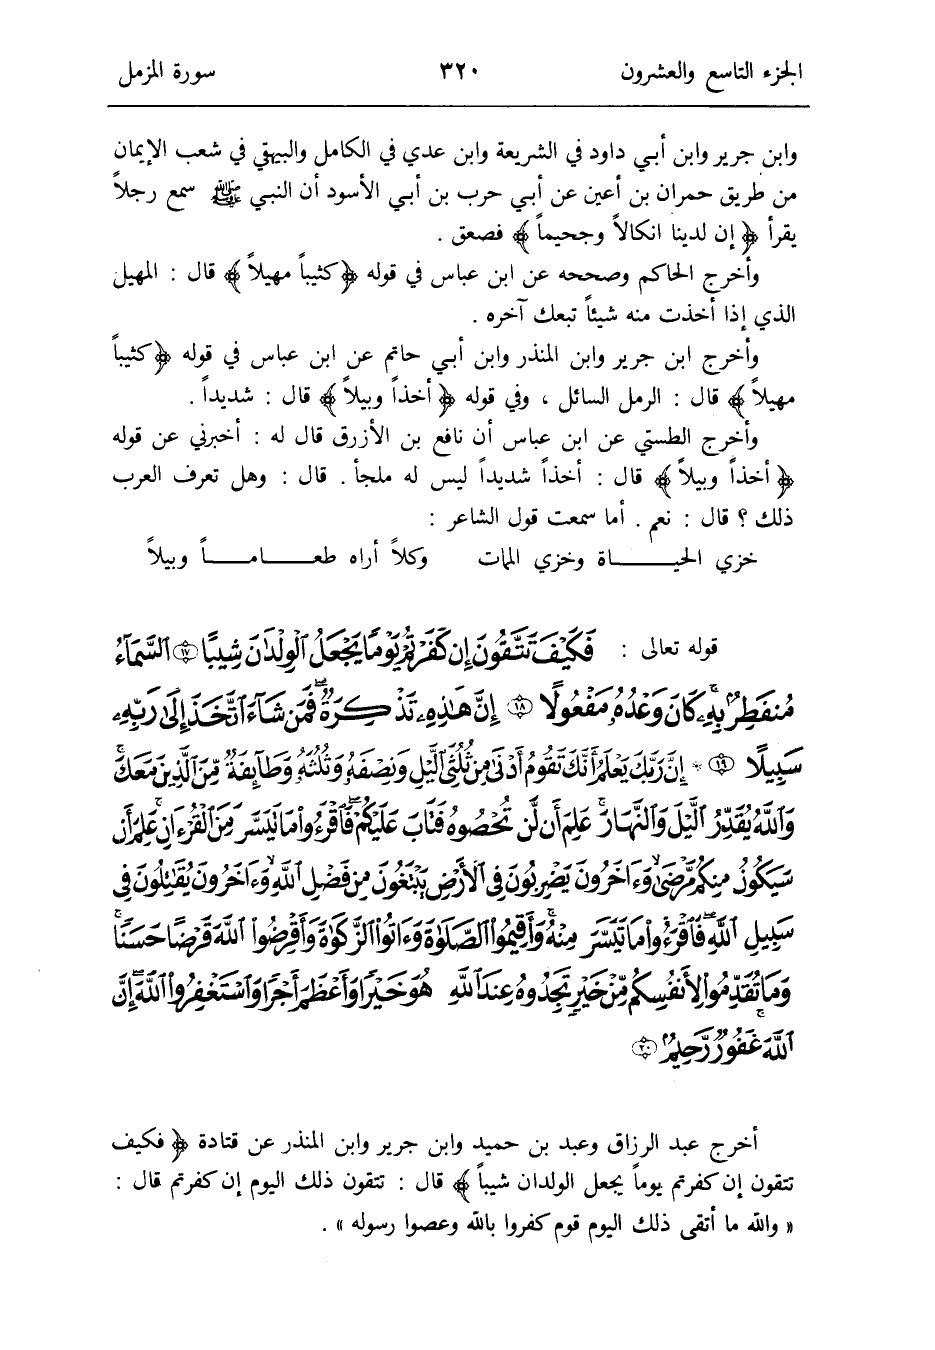 الجزء التاسع والعشرون ٣٢٠ سورة المزمل
وابن جرير وابن أبي داود في الشريعة وابن عدي في الكامل والبيهقي في شعب الإيمان
من طريق حمران بن أعين عن أبي حرب بن أبي الأسود أن النبي ﷺ سمع رجلاً
يقرأ ﴿ إن لدينا انكالاً وجحيماً ﴾ فصعق .
وأخرج الحاكم وصححه عن ابن عباس في قوله ﴿ كثيباً مهيلاً ﴾ قال : المهيل
الذي إذا أخذت منه شيئاً تبعك آخره .
وأخرج ابن جرير وابن المنذر وابن أبي حاتم عن ابن عباس في قوله ﴿ كثيباً
مهيلاً ﴾ قال : الرمل السائل ، وفي قوله ﴿ أخذاً وبيلاً ﴾ قال : شديداً .
وأخرج الطستي عن ابن عباس أن نافع بن الأزرق قال له : أخبرني عن قوله
﴿ أخذاً وبيلاً ﴾ قال : أخذاً شديداً ليس له ملجأ . قال : وهل تعرف العرب
ذلك ؟ قال : نعم . أما سمعت قول الشاعر :
خزي الحيـــــاة وخزي الممات وكلاً أراه طعـــامـــاً وبيلاً
قوله تعالى : فَكَيْفَ تَتَّقُونَ إِن كَفَرْتُمْ يَوْمًا يَجْعَلُ ٱلْوِلْدَٰنَ شِيبًا ﴿١٧﴾ ٱلسَّمَآءُ
مُنفَطِرٌۢ بِهِۦ ۚ كَانَ وَعْدُهُۥ مَفْعُولًا ﴿١٨﴾ إِنَّ هَٰذِهِۦ تَذْكِرَةٌ ۖ فَمَن شَآءَ ٱتَّخَذَ إِلَىٰ رَبِّهِۦ
سَبِيلًا ﴿١٩﴾ * إِنَّ رَبَّكَ يَعْلَمُ أَنَّكَ تَقُومُ أَدْنَىٰ مِن ثُلُثَىِ ٱلَّيْلِ وَنِصْفَهُۥ وَثُلُثَهُۥ وَطَآئِفَةٌ مِّنَ ٱلَّذِينَ مَعَكَ ۚ
وَٱللَّهُ يُقَدِّرُ ٱلَّيْلَ وَٱلنَّهَارَ ۚ عَلِمَ أَن لَّن تُحْصُوهُ فَتَابَ عَلَيْكُمْ ۖ فَٱقْرَءُوا۟ مَا تَيَسَّرَ مِنَ ٱلْقُرْءَانِ ۚ عَلِمَ أَن
سَيَكُونُ مِنكُم مَّرْضَىٰ ۙ وَءَاخَرُونَ يَضْرِبُونَ فِى ٱلْأَرْضِ يَبْتَغُونَ مِن فَضْلِ ٱللَّهِ ۙ وَءَاخَرُونَ يُقَٰتِلُونَ فِى
سَبِيلِ ٱللَّهِ ۖ فَٱقْرَءُوا۟ مَا تَيَسَّرَ مِنْهُ ۚ وَأَقِيمُوا۟ ٱلصَّلَوٰةَ وَءَاتُوا۟ ٱلزَّكَوٰةَ وَأَقْرِضُوا۟ ٱللَّهَ قَرْضًا حَسَنًا ۚ
وَمَا تُقَدِّمُوا۟ لِأَنفُسِكُم مِّنْ خَيْرٍ تَجِدُوهُ عِندَ ٱللَّهِ هُوَ خَيْرًا وَأَعْظَمَ أَجْرًا ۚ وَٱسْتَغْفِرُوا۟ ٱللَّهَ ۖ إِنَّ
ٱللَّهَ غَفُورٌ رَّحِيمٌۢ ﴿٢٠﴾
أخرج عبد الرزاق وعبد بن حميد وابن جرير وابن المنذر عن قتادة ﴿ فكيف
تتقون إن كفرتم يوماً يجعل الولدان شيباً ﴾ قال : تتقون ذلك اليوم إن كفرتم قال :
« والله ما أتقى ذلك اليوم قوم كفروا بالله وعصوا رسوله » .